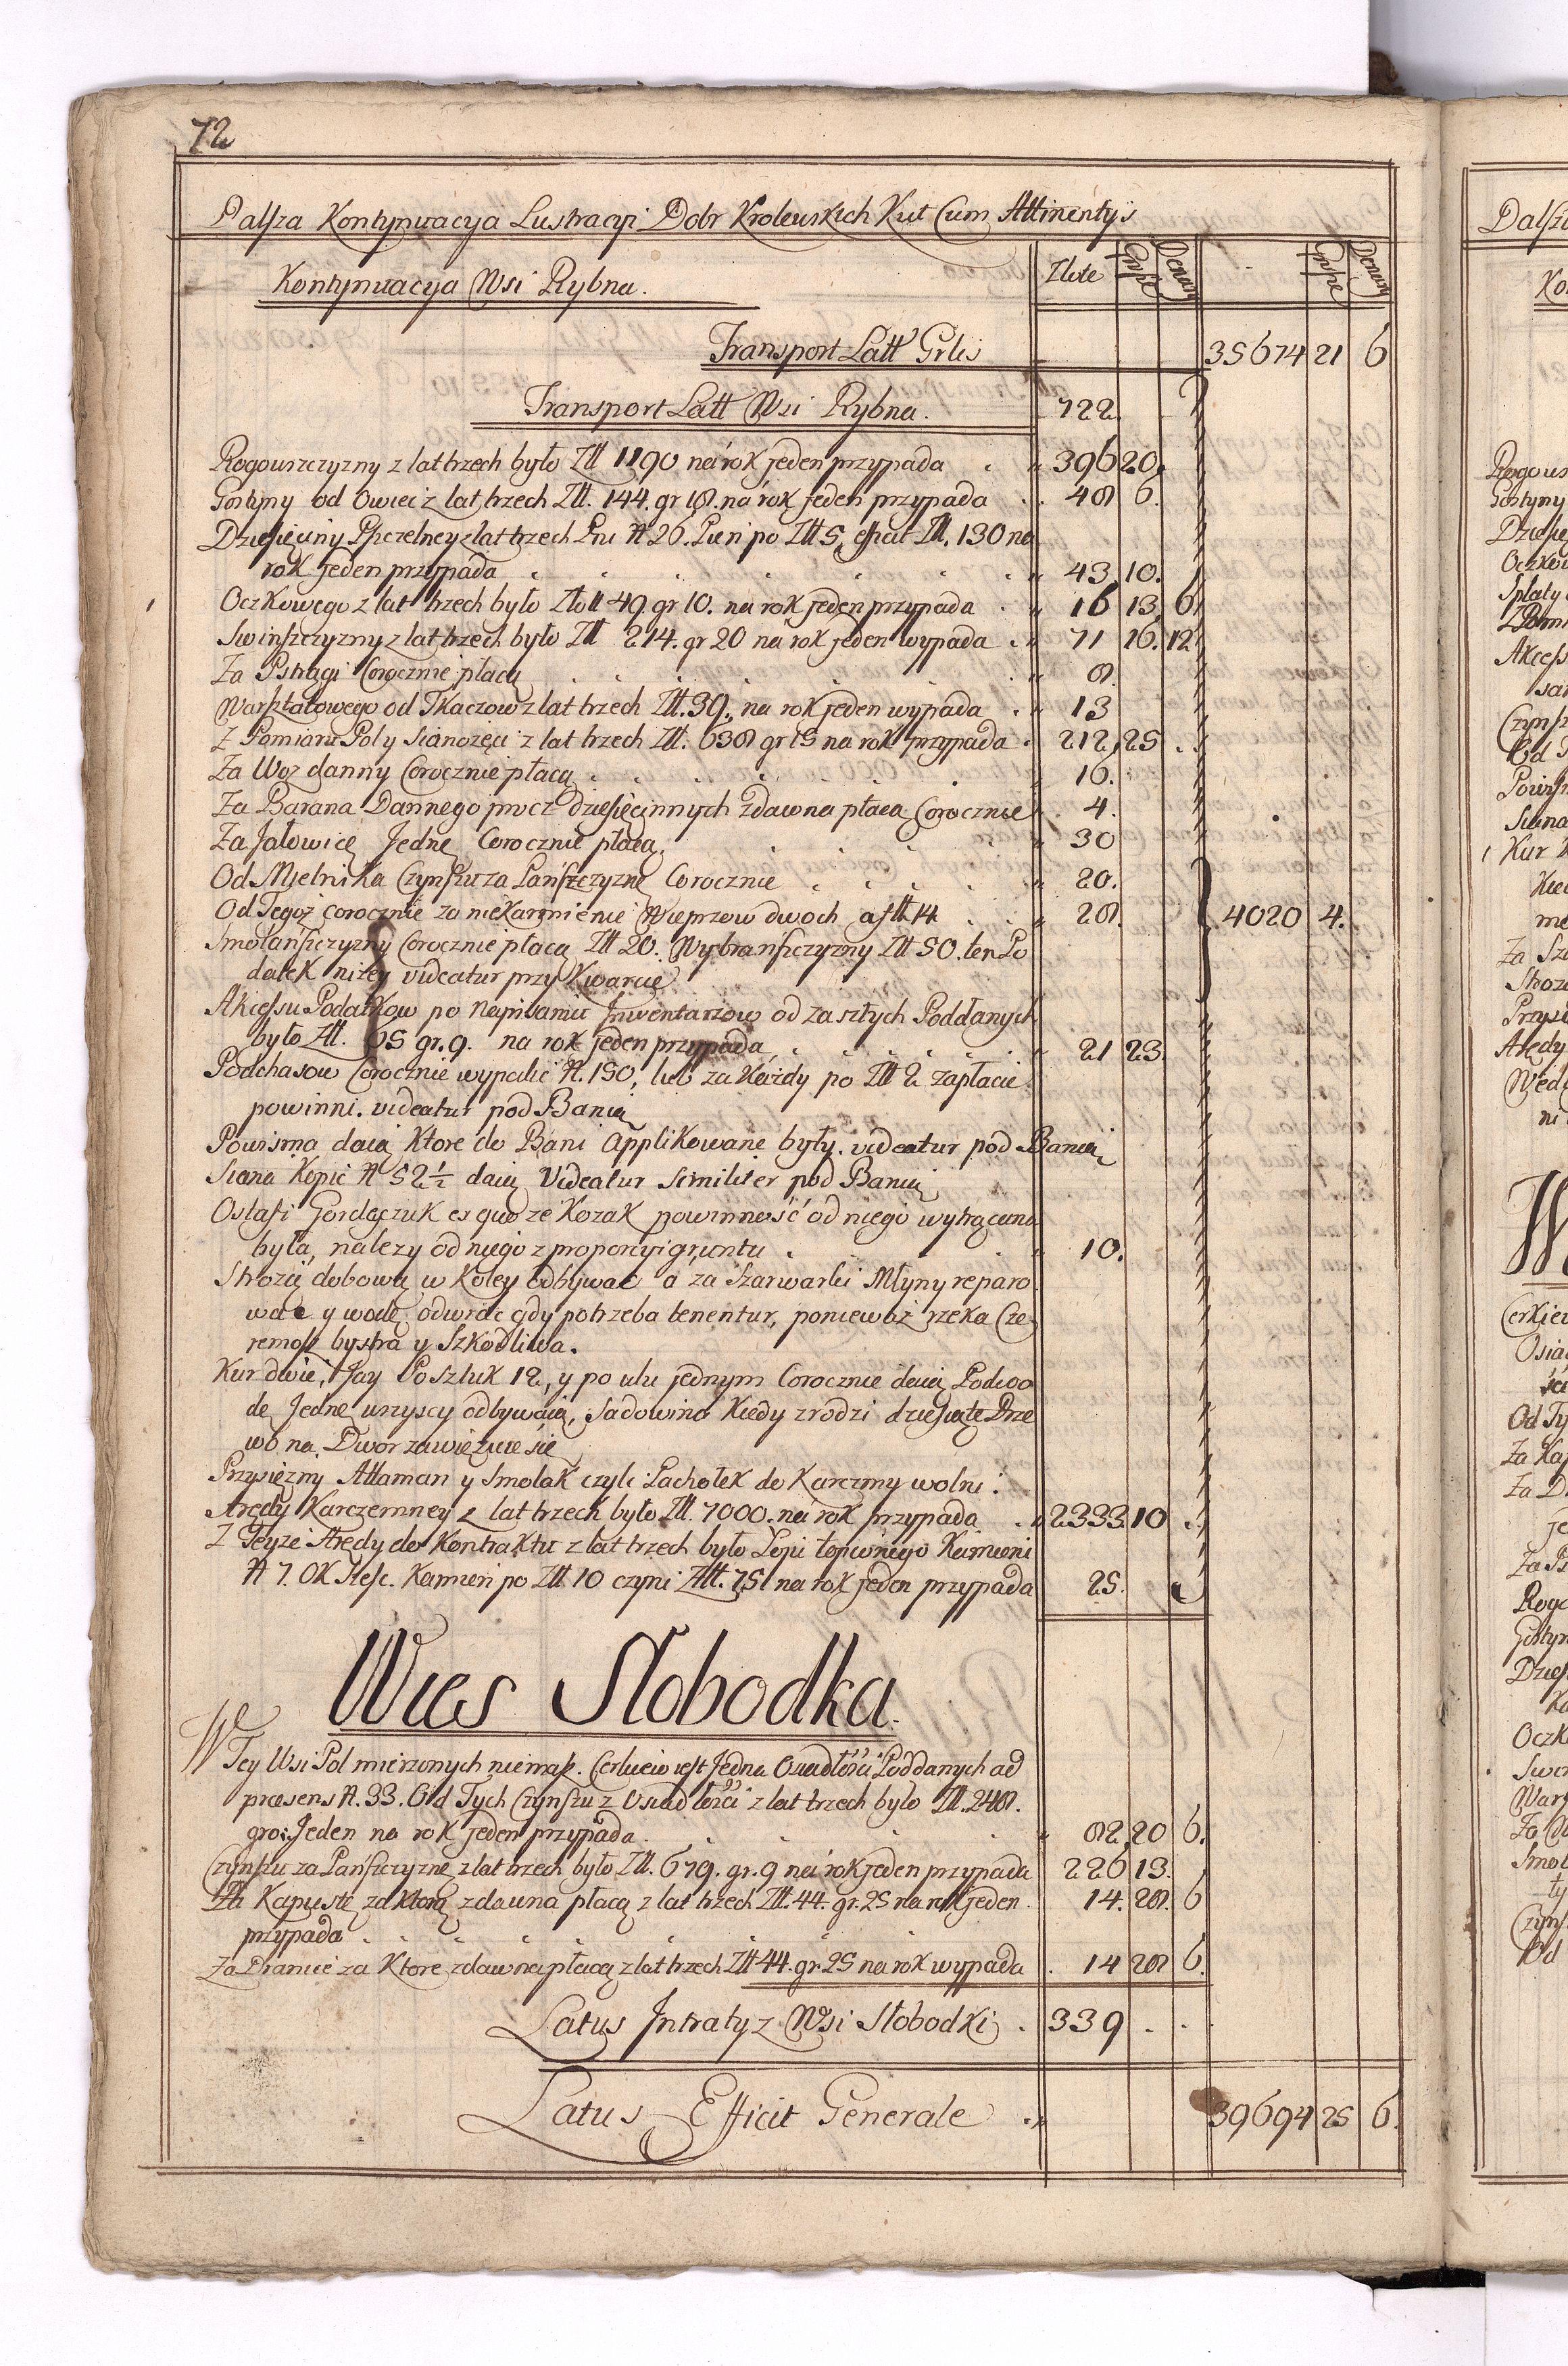 72
Dalsza Kontynuacya Lustracyi Dobr Krolewskich Kut Cum Attinentys
Kontynuacya Wsi Rybna. Złote Grosze Denary Grosze Denary
Transport Latt Grlis 35674 21 6
Transport Latt Wsi Rybna. 722.
Rogowszczyzny z lat trzech było Złł 1190 na rok jeden przypada 396 20.
Gostyny od Owiec z lat trzech Złł. 144. gr 18. na rok jeden przypada 48 6.
Dziesięciny Pszczelney z lat trzech Pni N 26. Pień po Złł 5. efficit Złł. 130 na
rok jeden przypada 43. 10.
Oczkowego z lat trzech było Złoll 49 gr 10. na rok jeden przypada 16 13. 6.
Swinszczyzny z lat trzech było Złł 214. gr 20 na rok jeden wypada 71 16. 12.
Za Pstrągi Corocznie płacą 8.
Warsztatowego od Tkaczow z lat trzech Złł. 39., na rok jeden wypada 13
Z Pomiaru Poly Sianożęci z lat trzech Złł. 638 gr 15 na rok przypada 212. 25.
Za Woz danny Corocznie płacą 16.
Za Barana Dannego procz dziesięcinnych zdawna płacą Corocznie 4.
Za Jałowicę Jednę Corocznie płacą. 30
Od Mielnika Czynszu za Pańszczyznę Corocznie 20.
Od Tegoż corocznie za niekarmienie Wieprzow dwoch a Złł. 14 28. 4020 4.
Smolańszczyzny Corocznie płacą Złł 20. Wybrańszczyzny Złł 50. ten Po
datek niżey videatur przy Kwarcie.
Akcessu Podatkow po Napisaniu Inwentarzow od zaszłych Poddanych
było Złł. 65 gr. 9. na rok jeden przypada 21 23.
Podchasow Corocznie wypalić N. 150, lub za Każdy po Złł 2 zapłacić
powinni. videatur pod Banią
Powisma daią Ktore do Bani Applikowane były. videatur pod Banią
Siana Kopic N 52 1/2 daią Videatur Similiter pod Banią
Ostafi Gordaszuk ex quo ze Kozak powinność od niego wytrącona
była, należy od niego z proporcyi gruntu 10.
Strożą dobową w Koley odbywać a za Szarwarki Młyny reparo
wać y wodę odwrac gdy potrzeba tenentur, ponieważ rzeka Cze
remosz bystra y Szkodliwa.
Kur dwie, Jay Posztuk 12, y po ulu jednym Corocznie daią Podwo
dę Jednę wszyscy odbywaią, Sadowina Kiedy zrodzi dziesiąte Drze
wo na Dwor zawięzuie się
Przysiężny Attaman y Smolak czyli Pachołek do Karczmy wolni.
Arędy Karczemney z lat trzech było Złł. 7000. na rok przypada 2333. 10
Z Teyże Arędy do Kontraktu z lat trzech było Łoiu topionego Kamieni
N 7. Ok Sześc. Kamień po Złł 10 czyni Złł. 75 na rok jeden przypada 25.
Wies Slobodka.
W Tey Wsi Pol mierzonych niemasz. Cerkiew iest Jedna Osiadłości Poddanych ad
præsens N. 33. Od Tych Czynszu z Osiadłości z lat trzech było Złł. 248.
gro: Jeden na rok jeden przypada 82. 20 6.
Czynszu za Pańszczyznę z lat trzech było Złł. 679. gr. 9 na rok jeden przypada 226 13.
Za Kapustę za Ktorą zdawna płacą z lat trzech Złł. 44. gr. 25 na rok jeden 14. 28. 6
przypada
Za Pranie za Ktore zdawna płacą z lat trzech Złł 44. gr. 25 na rok wypada 14 28 6.
Latus Intraty z Wsi Słobodki 339
Latus Efficit Generale 39694 25 6.